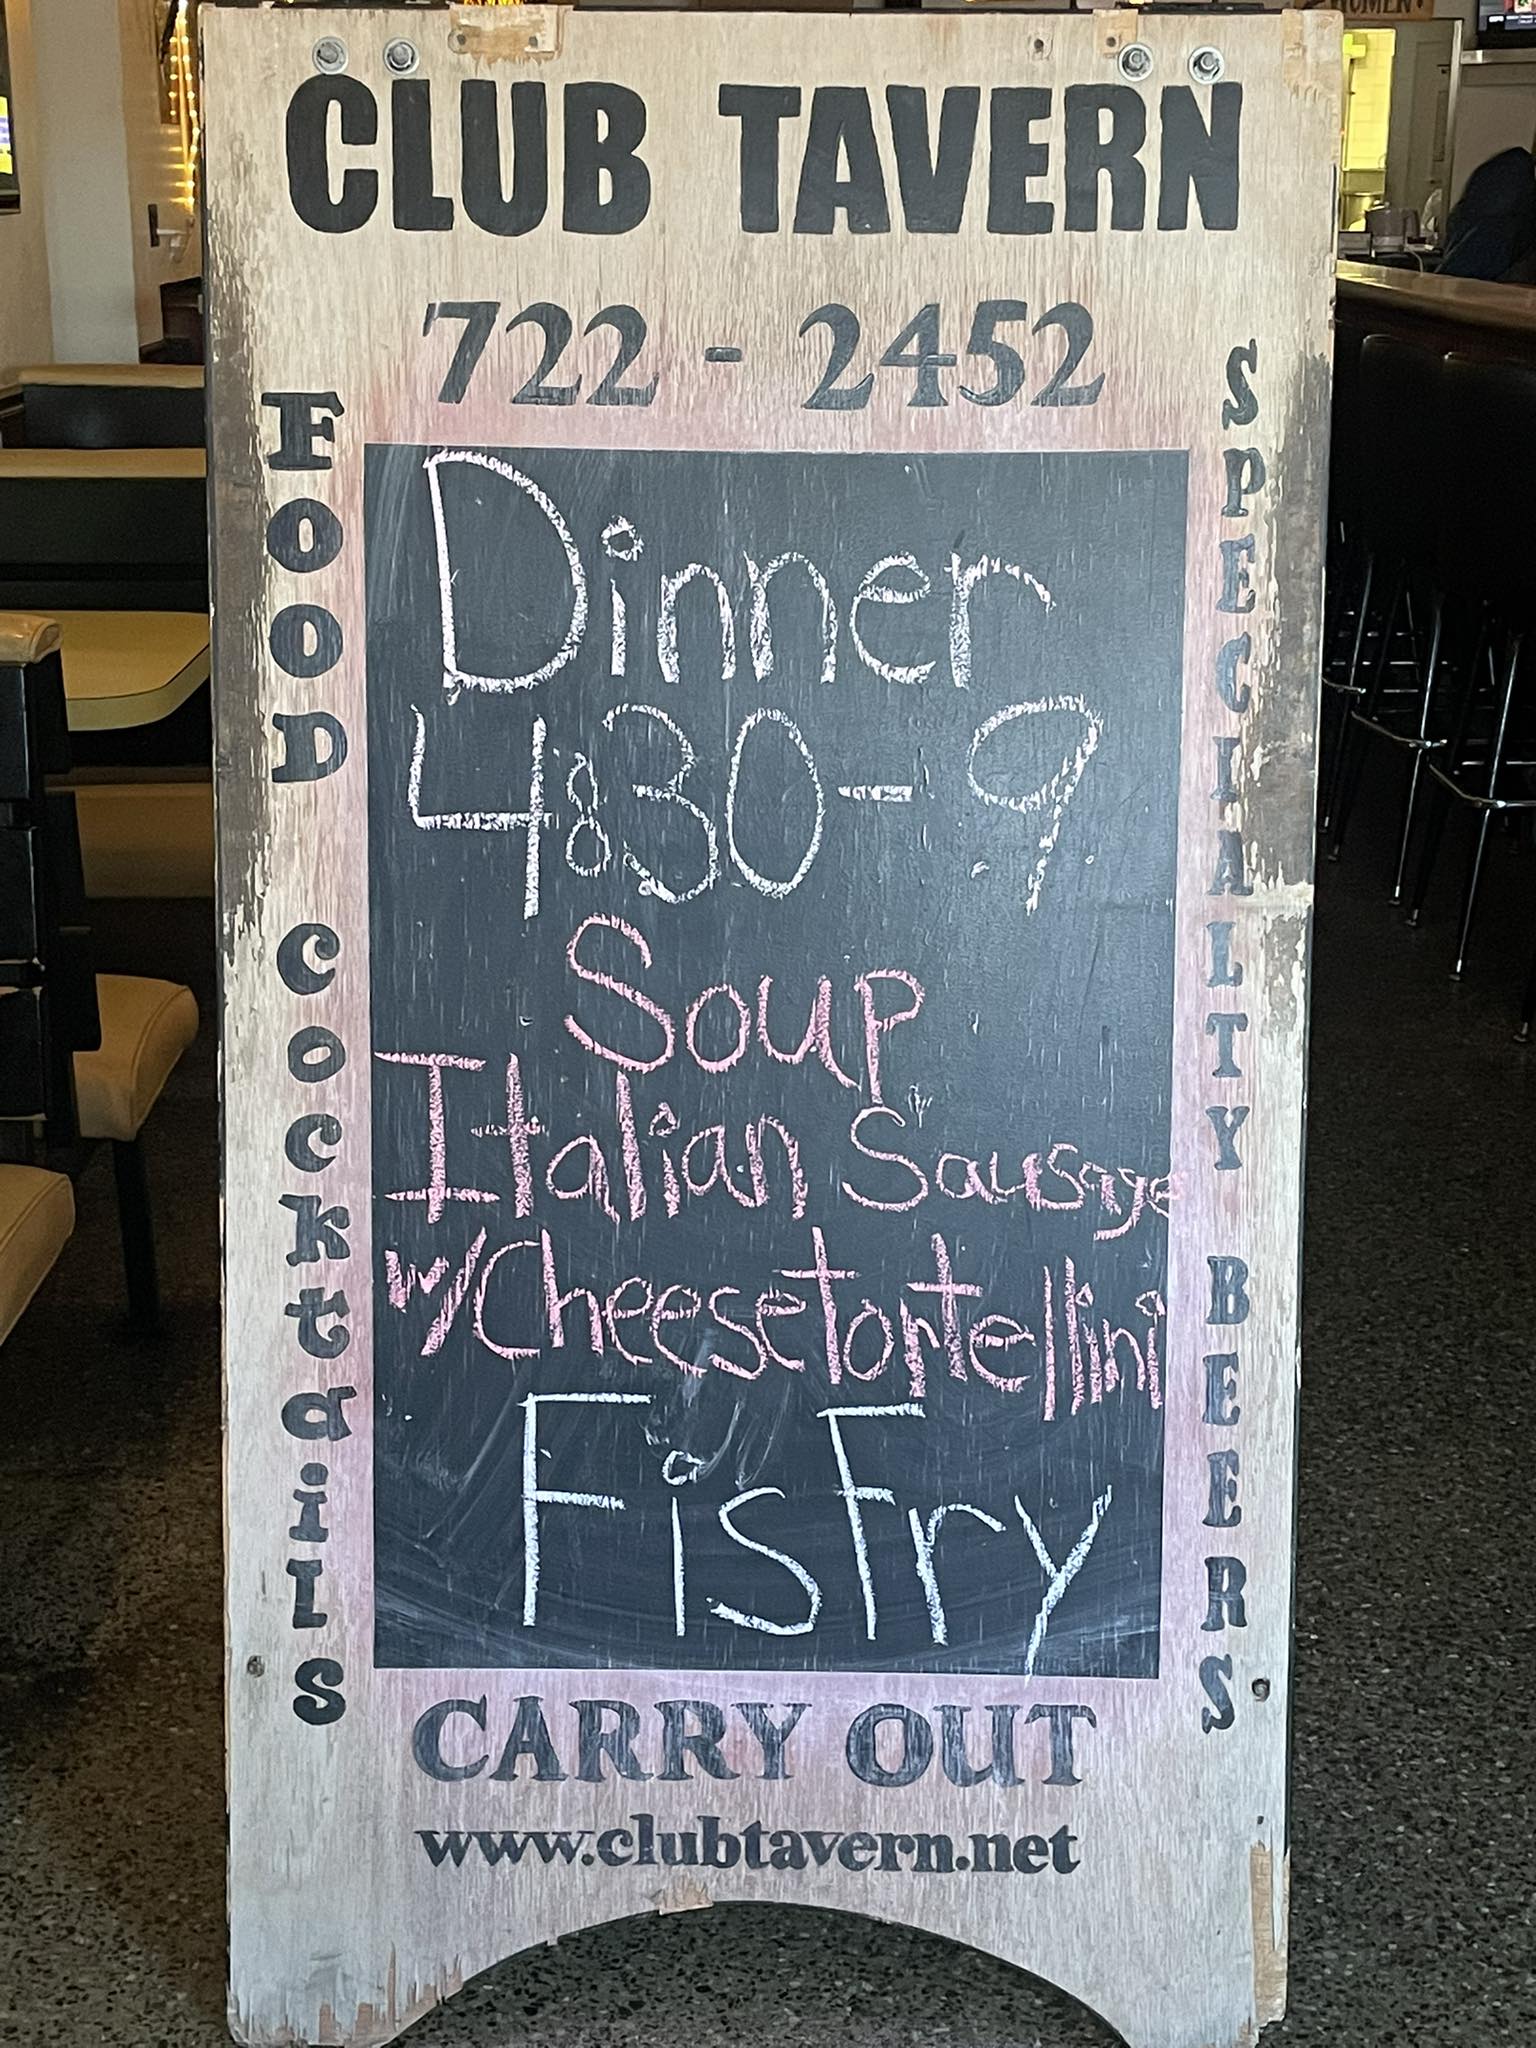 WOMEN
CLUB TAVERN
722 - 2452
FOOD COCKTAILS
Dinner
4:30-9
Soup
Italian Sausage
w/Cheese tortellini
FisFry
SPECIALTY BEERS
CARRY OUT
www.clubtavern.net